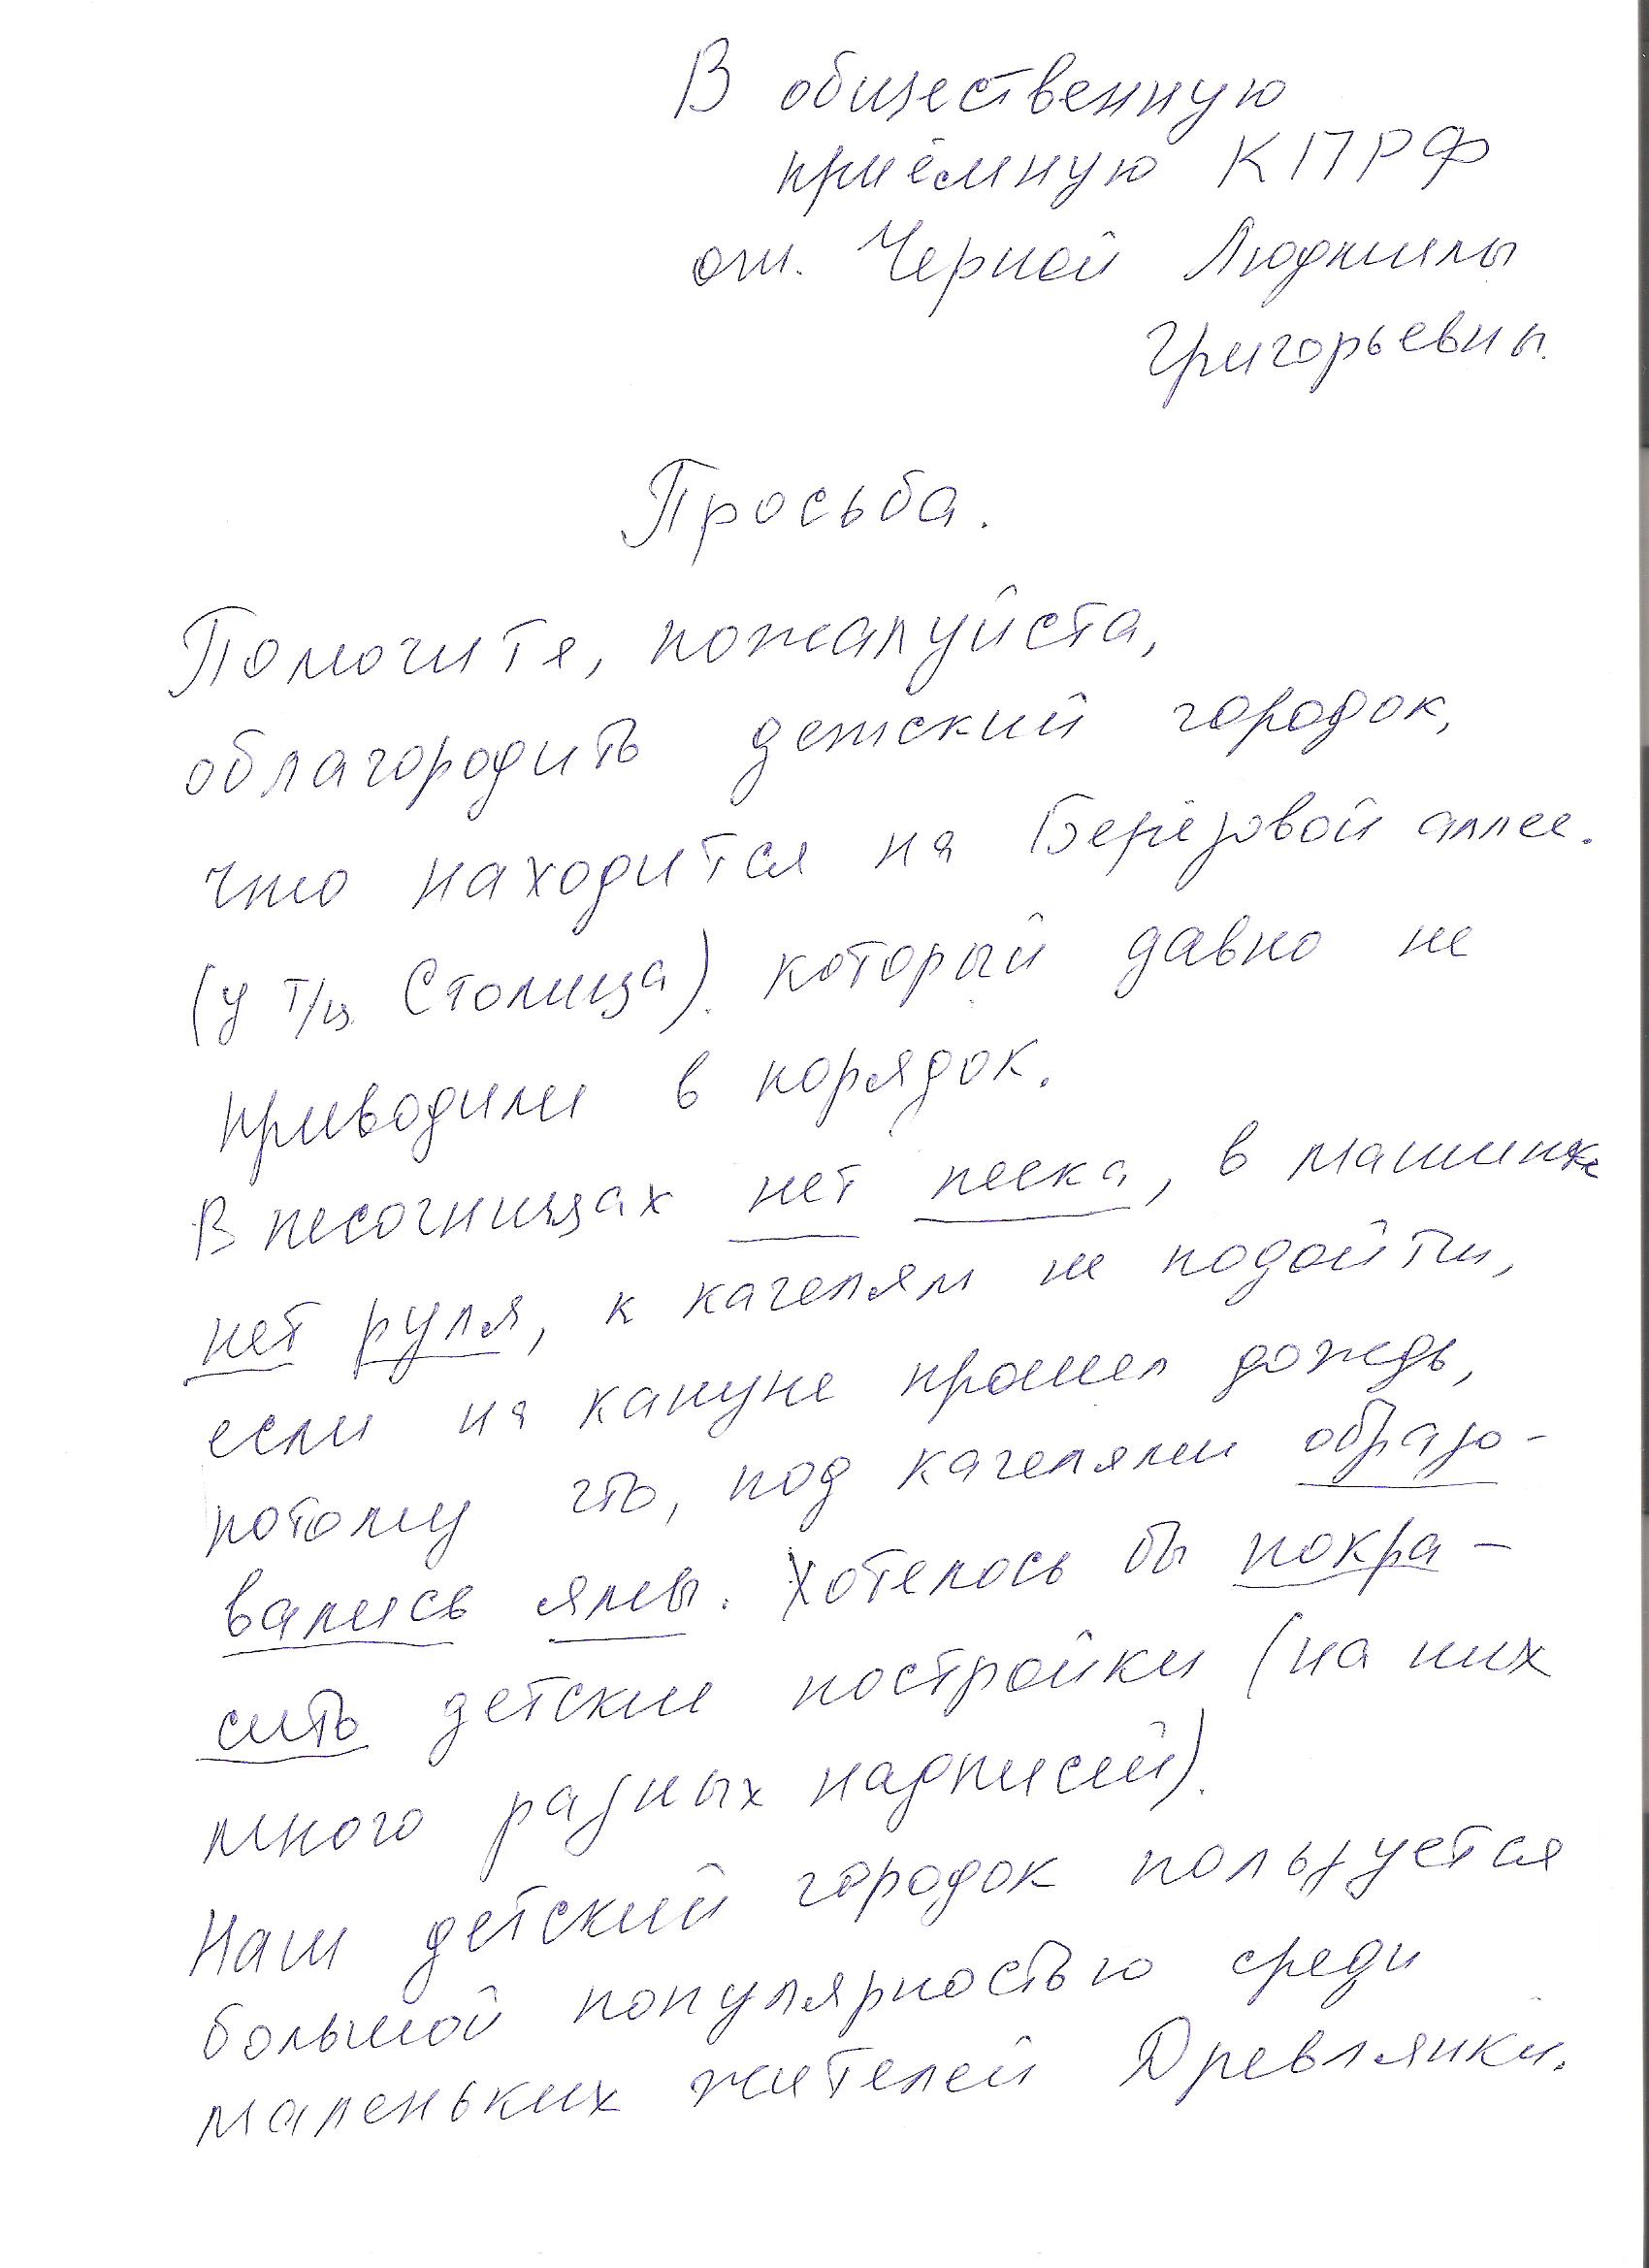 В общественную
приёмную КПРФ
от. Черной Людмилы
Григорьевны.
Просьба.
Помогите, пожалуйста,
облагородить детский городок,
что находится на Берёзовой аллее.
(у т/ц. Столица). который давно не
приводили в порядок.
В песочницах нет песка, в машинке
нет руля, к качелям не подойти,
если на кануне прошел дождь,
потому что, под качелями образо-
вались ямы. Хотелось бы покра-
сить детские постройки (на них
много разных надписей).
Наш детский городок пользуется
большой популярностью среди
маленьких жителей Древлянки.